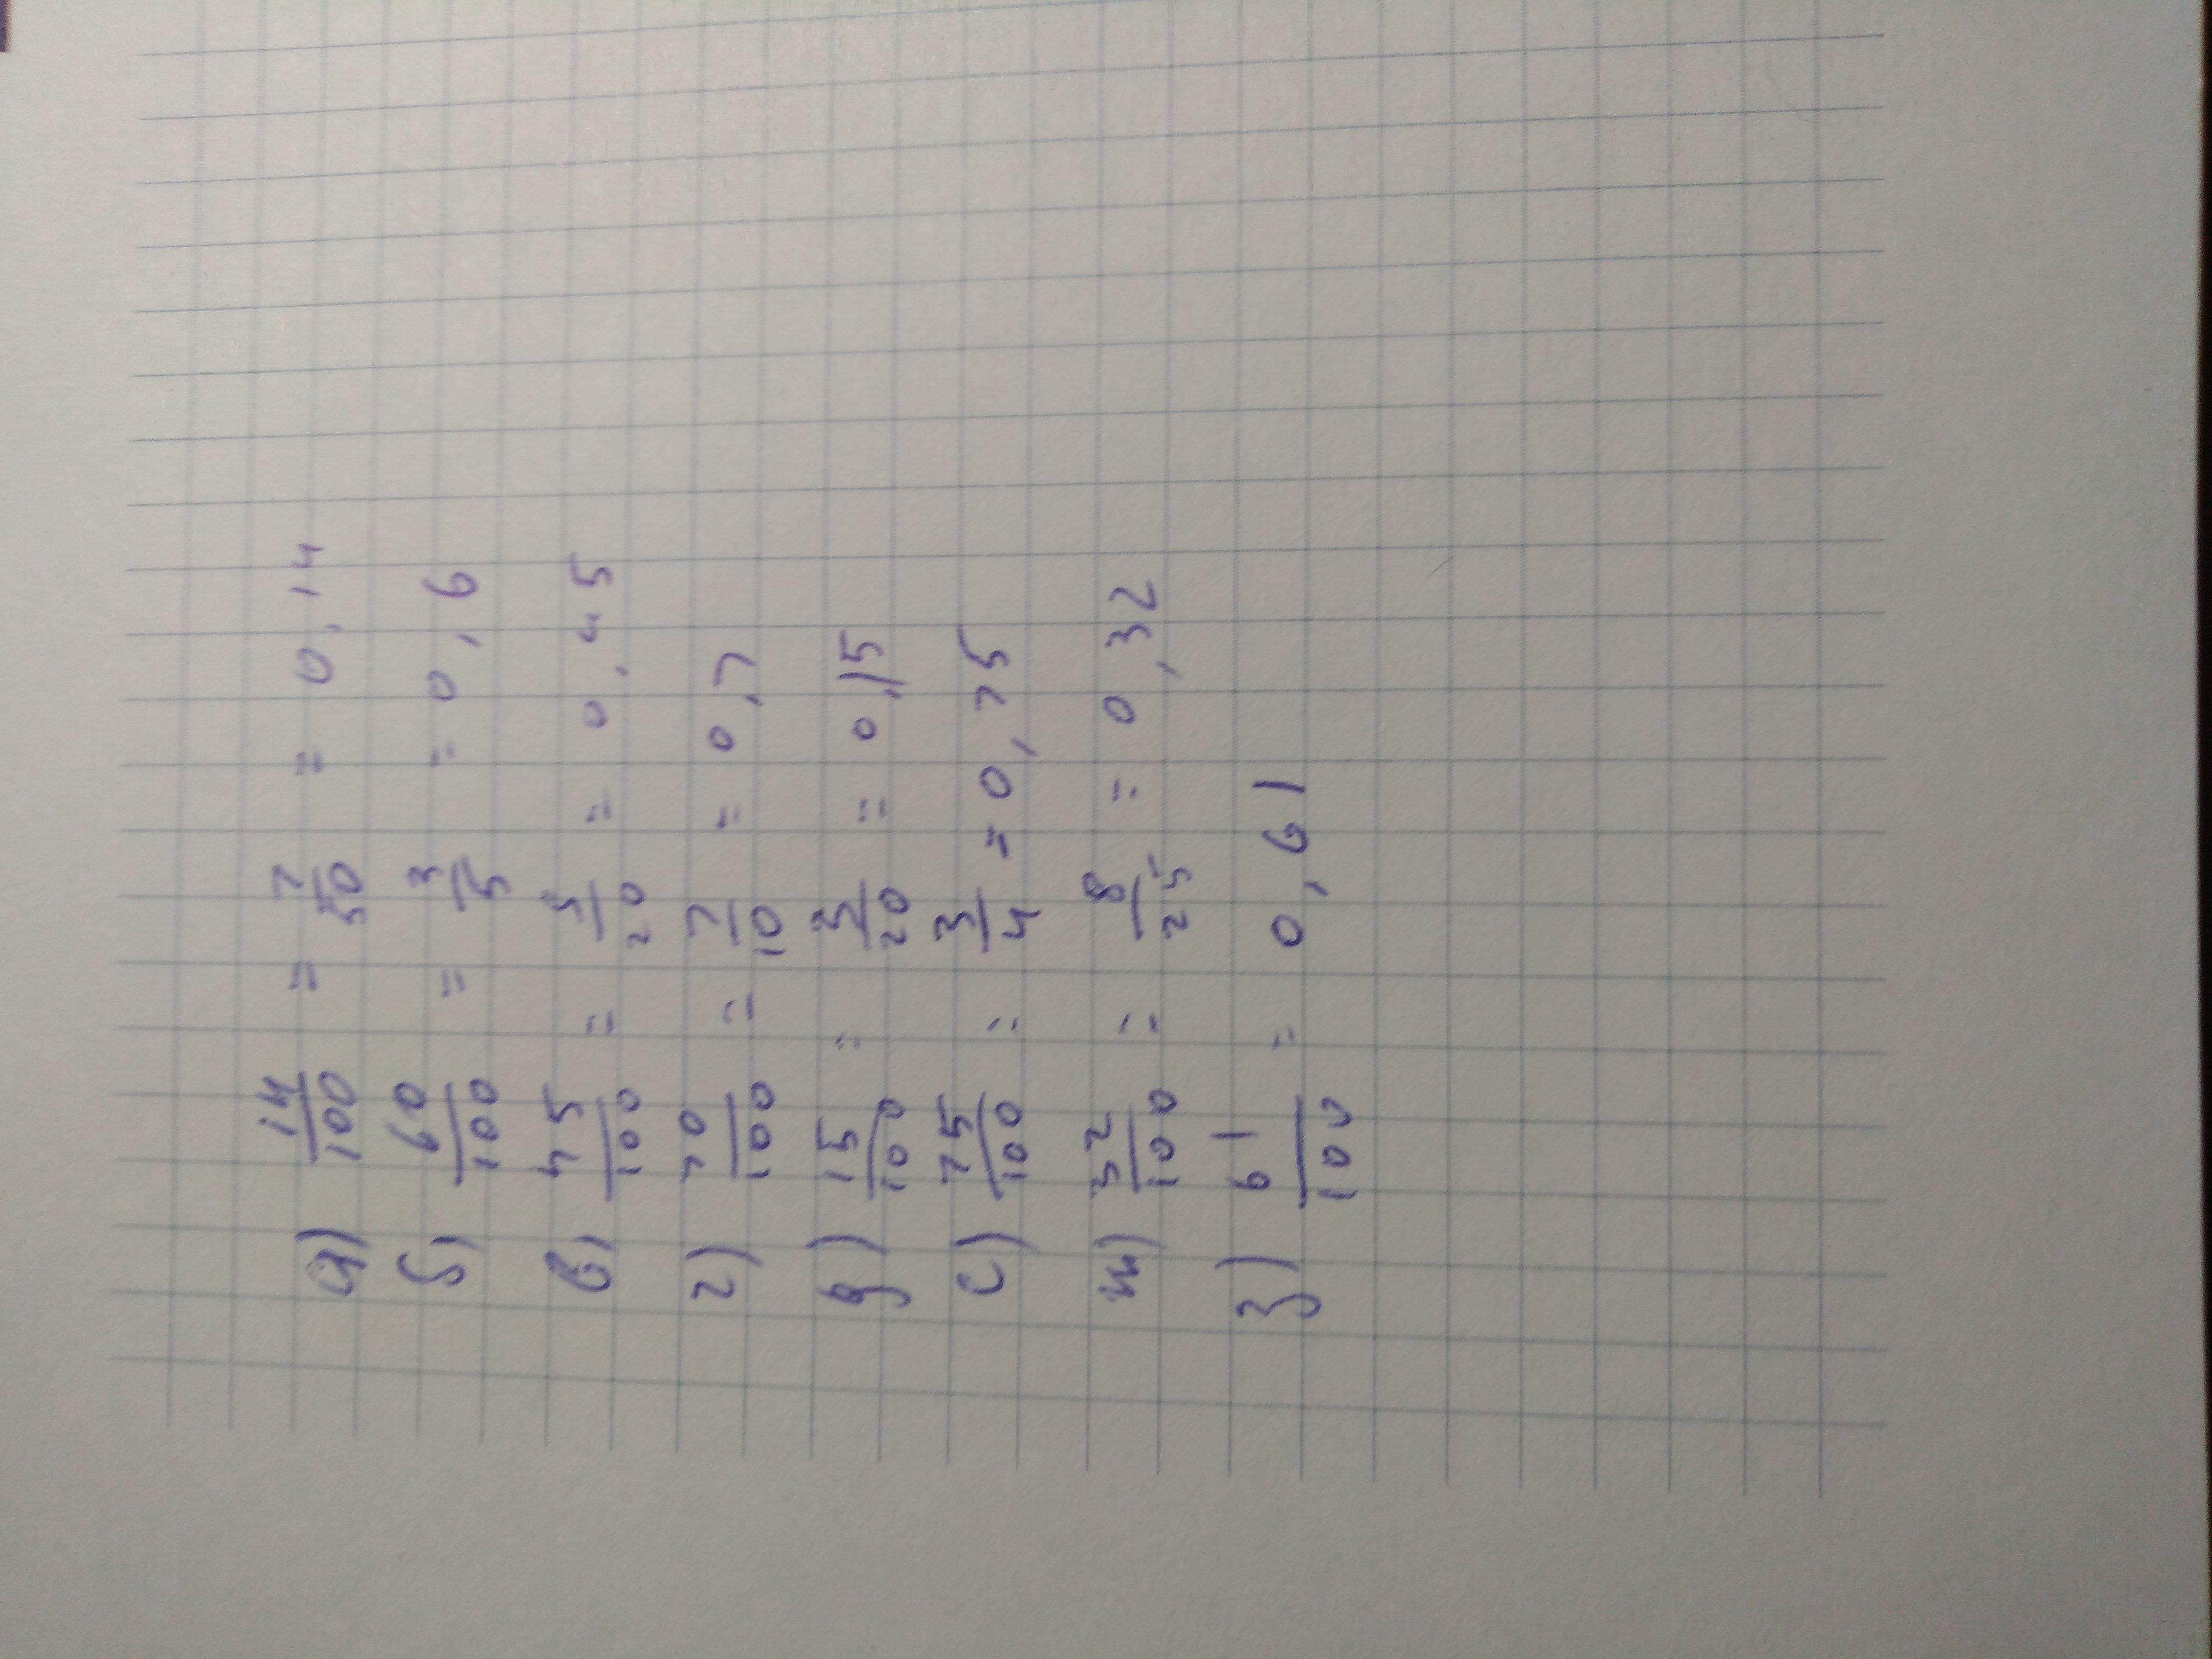 а) 14/100 = 7/50 = 0,14
б) 60/100 = 3/5 = 0,6
в) 45/100 = 9/20 = 0,45
г) 70/100 = 7/10 = 0,7
д) 15/100 = 3/20 = 0,15
е) 75/100 = 3/4 = 0,75
ж) 32/100 = 8/25 = 0,32
з) 61/100 = 0,61